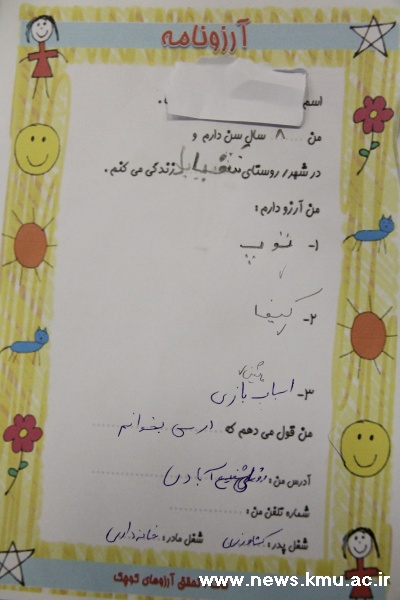 آرزونامه
اسم
من ۸ سال سن دارم و
در شهر/ روستای زندگی می کنم.
من آرزو دارم:
۱- توپ
۲- کیف
۳- اسباب بازی
ماشین
من قول می دهم که درسی بخوانم
آدرس من:
شماره تلفن من:
شغل پدر: کشاورزی شغل مادر: خانه داری
تحقق آرزوهای کوچک
www.news.kmu.ac.ir